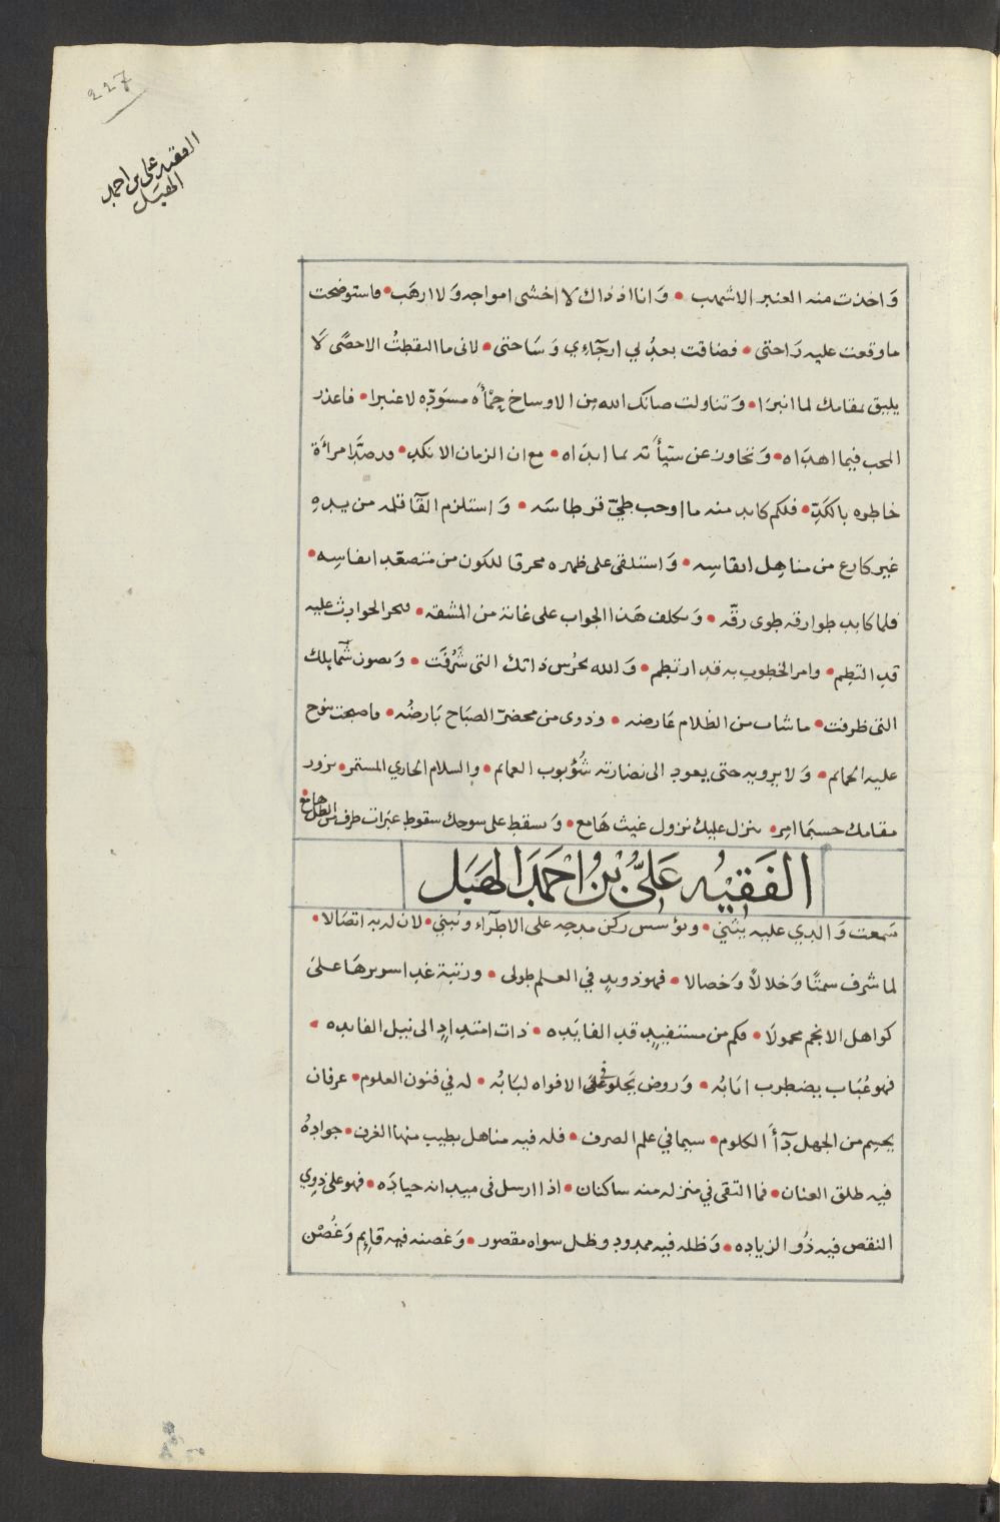 227
الفقيه على بن احمد
الهبَل
وَاخذت منه العنبر الاشهب • وَانا اذ ذاك لا اخشى امواجه وَلا ارهَب • فاستوضحت
ما وقعت عليه رَاحتى • فضاقت بعدُ لي ارجَآءِي وَسَاحتى • لانى ما التقطتُ الا حصًى لَا
يليق بمقامك لما انبرَا • وَتناولت صانك الله من الاوساخ حمْأَه مسوَدّه لا عنبرا • فاعذر
المحب فيما اهدَاه • وَتجاوز عن سيّأته بما ابدَاه • مع ان الزمان الانكد • قد صدَّا مرآءَة
خاطره بالكَدّ • فلكم كابد منه ما اوجب طيّ قرطاسَه • وَاستلزم القآ قلمه من يدهِ
غير كارع من مناهِل انقاسِه • وَاستلقى على ظهره محرقا للكون من متصعّد انفاسِه •
فلما كابد طوارقه طوى رقّه • وَتكلف هَذا الجواب على غاية من المشقه • لبحر الحوادث عليه
قد التطم • وامر الخطوب به قد ارتبطم • وَالله يحرُس ذاتك التى شَرُفَت • وَيصون شمَآيلك
التى ظرفت • ما شاب من الظلام عَارضه • وذوى من مخضرّ الصبَاح بَارضُه • واصبحت تنوح
عليه الحمايم • وَلا يرويه حتى يعود الى نضارته شُؤبوب الغمايم • والسلام الجاري المستمر • يزور
مقامك حسبمَا امِر • ينزل عليك نزول غيث هَامع • وَيسقط على سوحك سقوط عبَرات طرف من الطل هامع •
الفَقِيْه عَلِيُّ بْنُ احْمَد الهَبَل
سَمعت وَالدي عليه يُثنى • ويؤسس ركن مدحه على الاطرَآء ويَبني • لان له به اتصَالا •
لما شرف سمتًا وَخلالاً وَخصالا • فهو ذو يدٍ في العلم طولى • ورتبة غدا سريرهَا على
كواهل الانجم محمولَا • فكم من مستفيدٍ قد الفا يَده • ذات امتدادٍ الى نيل الفايده •
فهو عُبَاب يضطرب ابَابُه • وَروض يَحلو فى الافواه لبَابُه • له في فنون العلوم • عرفان
يحسِم من الجهل دآءَ الكلوم • سيما في علم الصرف • فله فيه مناهل يطيب منها الغرف • جوادهُ
فيه طلق العنان • فما التقى في منزله منه ساكنان • اذا ارسل فى ميدانه جيادَه • فهو على ذوي
النقص فيه ذُو الزياده • وَظله فيه ممدود وظل سواه مقصور • وَغصنه فيه قايم وَغُصْن